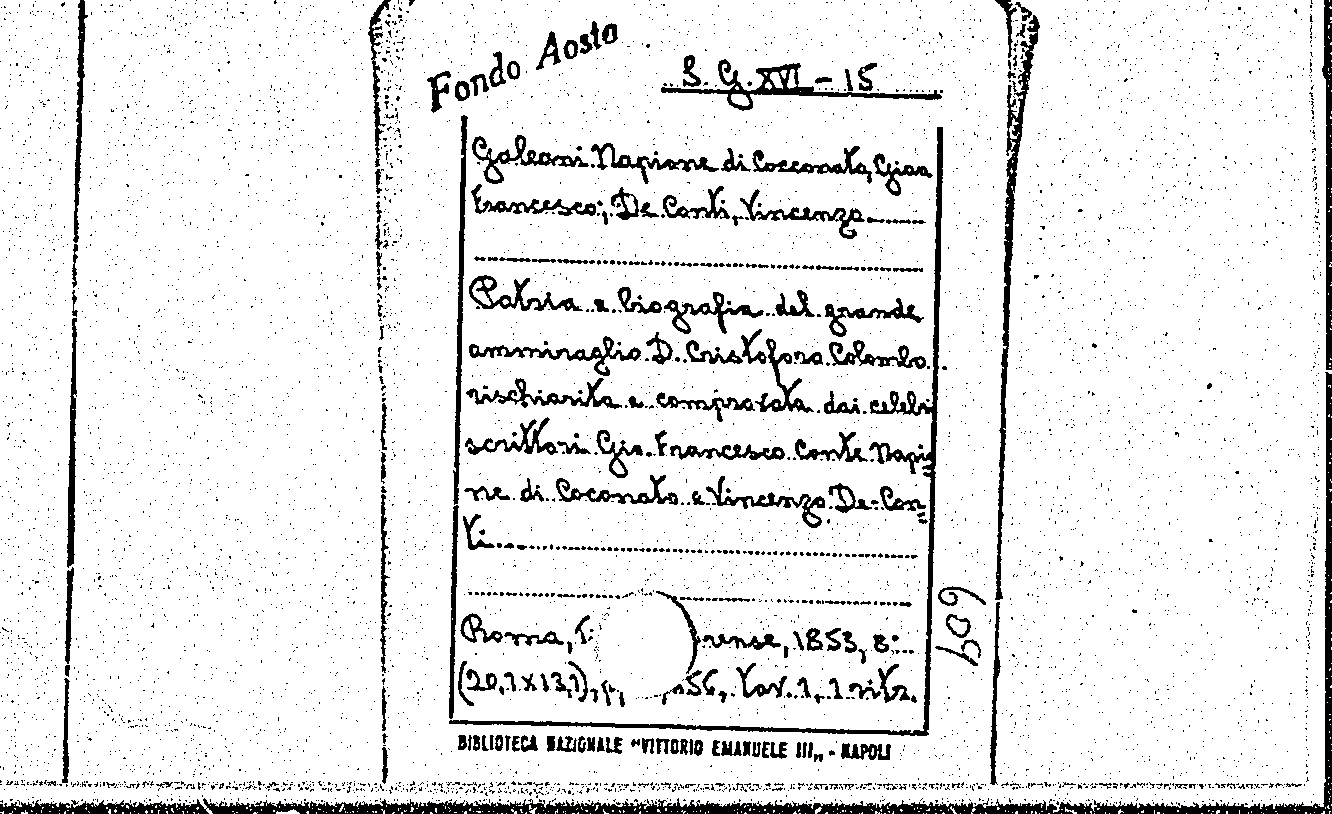 Fondo Aosta
S. G. XVI - 15
Galeani Napione di Cocconato, Gian
Francesco; De Conti, Vincenzo.
Patria e biografia del grande
ammiraglio D. Cristoforo Colombo
rischiarita e comprovata dai celebri
scrittori Gio. Francesco Conte Napio
ne di Coconato e Vincenzo De-Con
ti
Roma, 1853, 8°
(20,1x13,1), tav. 1, 1 ritr.
609
BIBLIOTECA NAZIONALE "VITTORIO EMANUELE III„ - NAPOLI